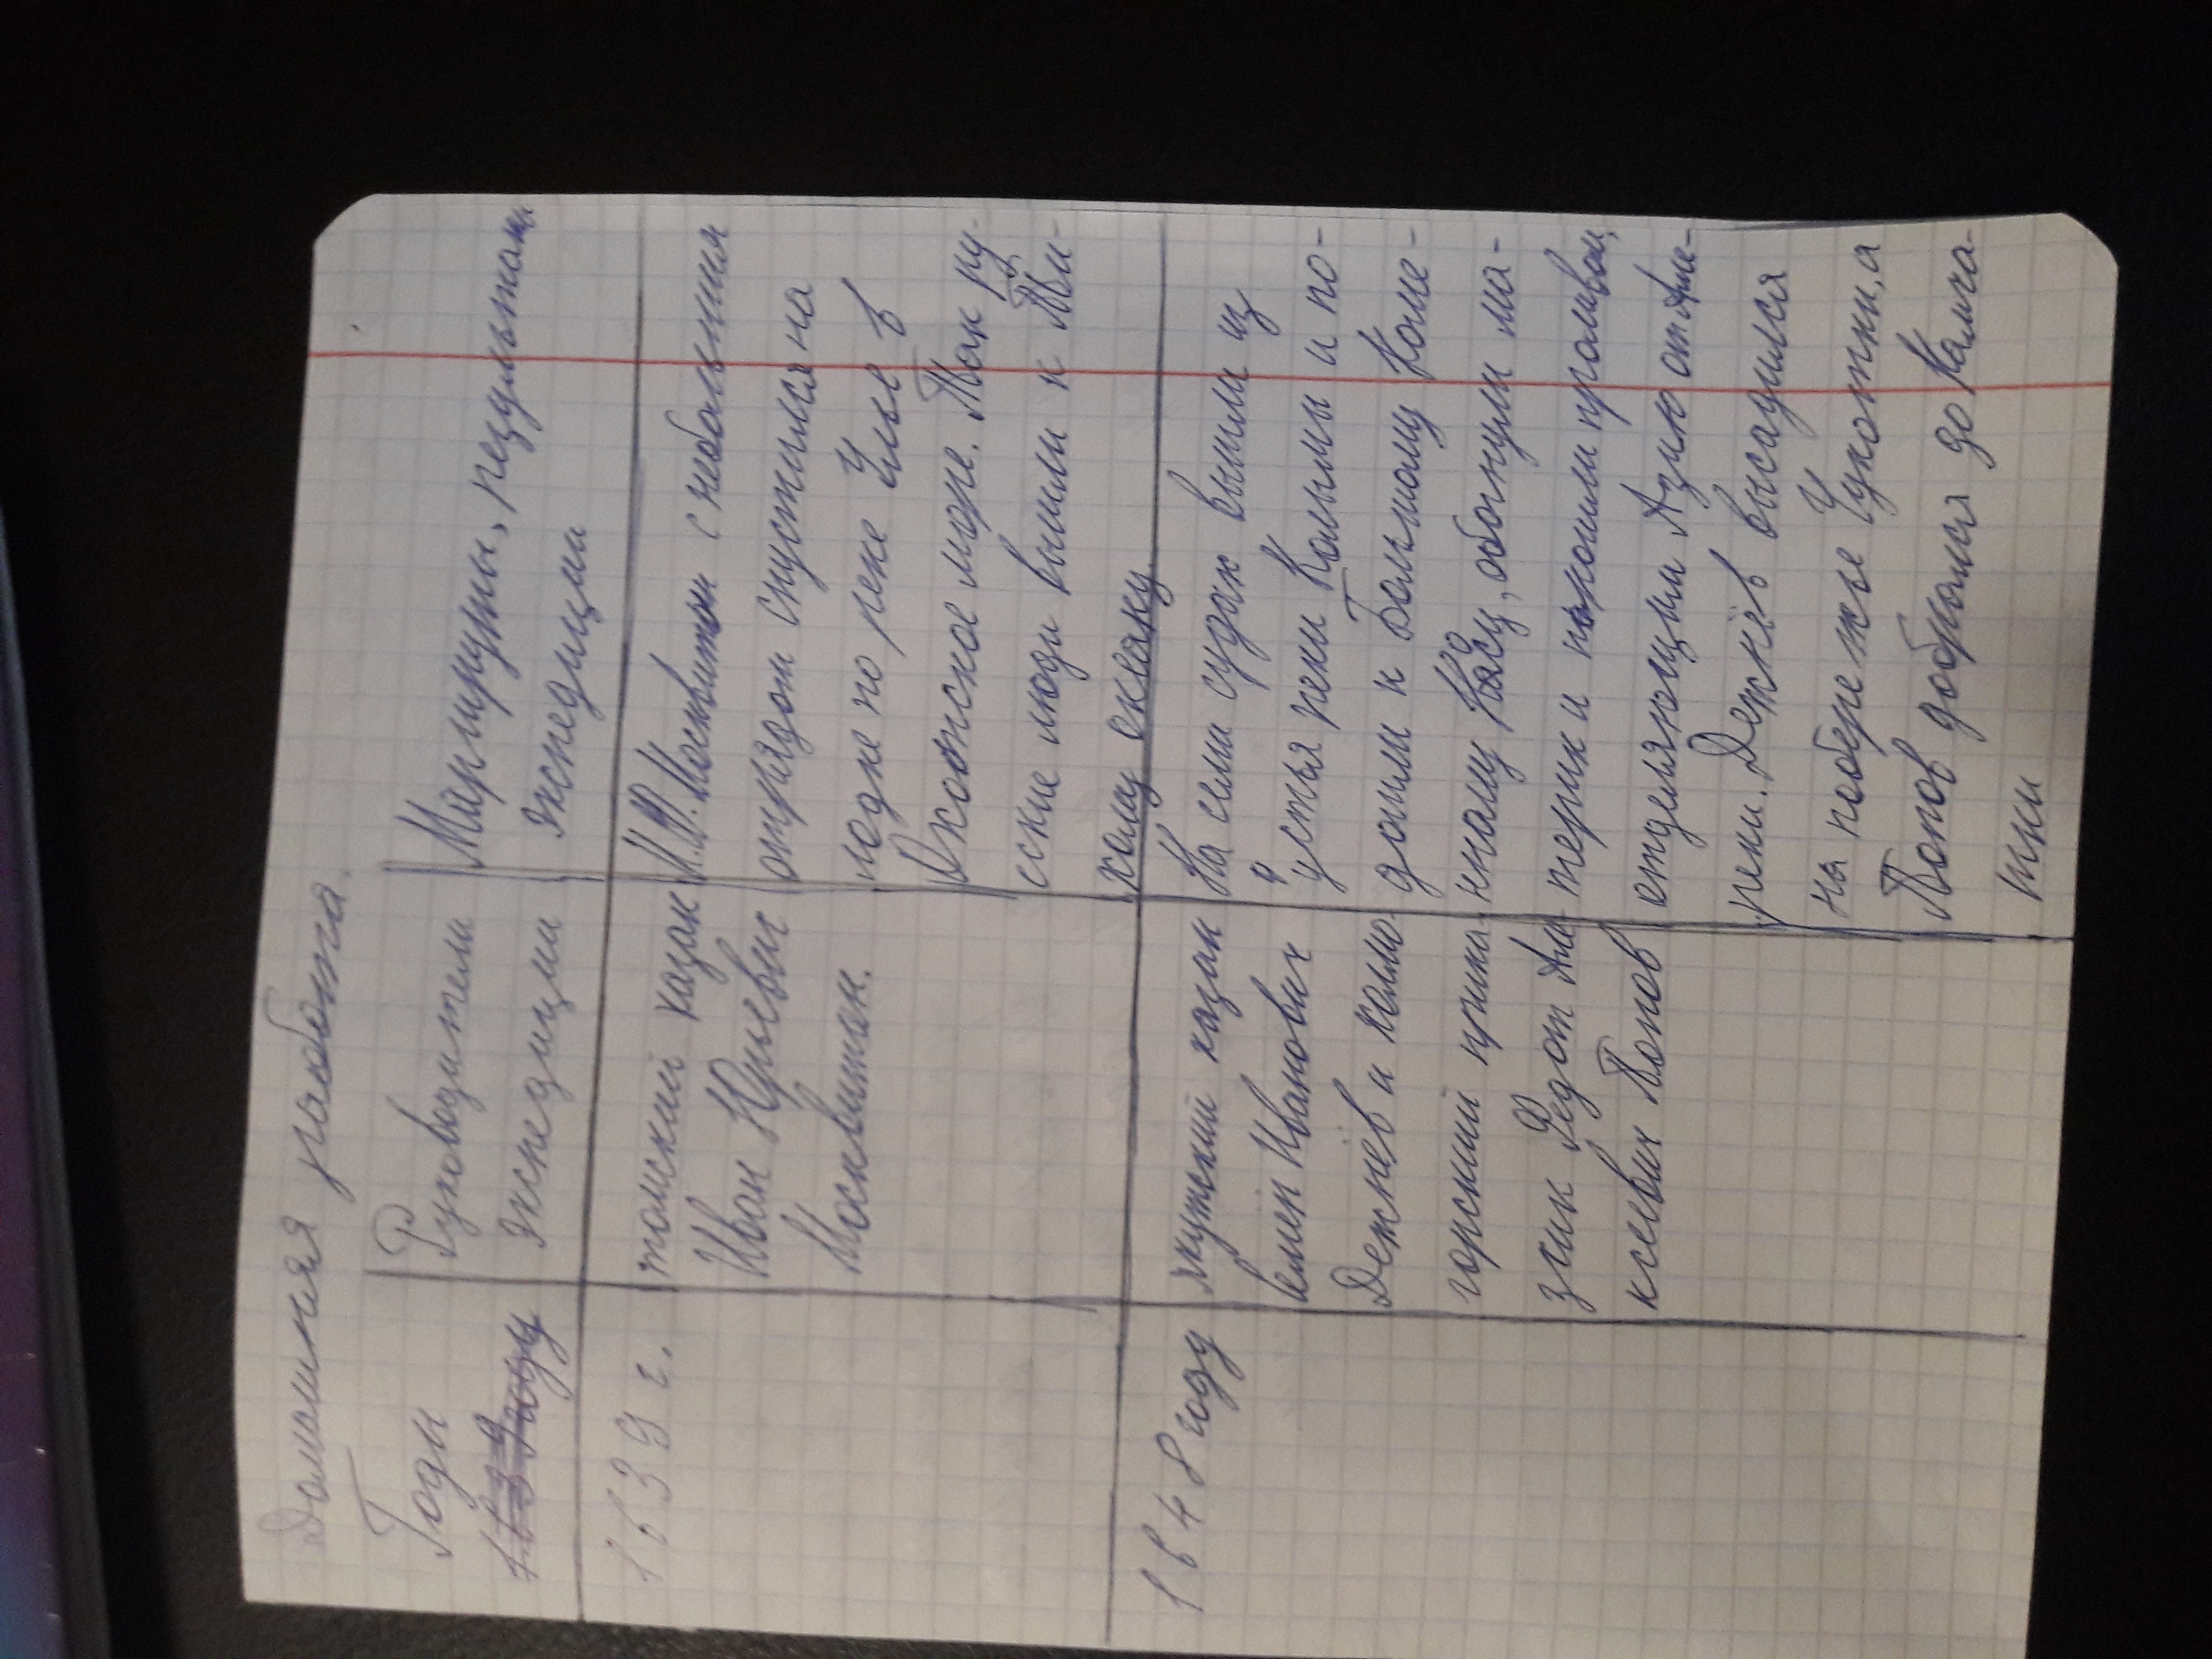 Домашняя работа.
Годы
1639 году
Руководители
экспедиции
Маршруты, результаты
экспедиции
1639 г.
томский казак
Иван Юрьевич
Москвитин.
И.Ю. Москвитин с небольшим
отрядом спустился на
лодке по реке Улье в
Охотское море. Так ру-
сские люди вышли к Ти-
хому океану
1648 году
якутский казак
Семён Иванович
Дежнёв и холмо
горский прика
зчик Федот Але
ксеевич Попов
На семи судах вышли из
устья реки Колымы и по-
дошли к Большому Каме-
нному Носу, обогнули ма-
терик и прошли проливом,
отделяющим Азию от Аме-
рики. Дежнёв высадился
на побережье Чукотки, а
Попов добрался до Камча-
тки